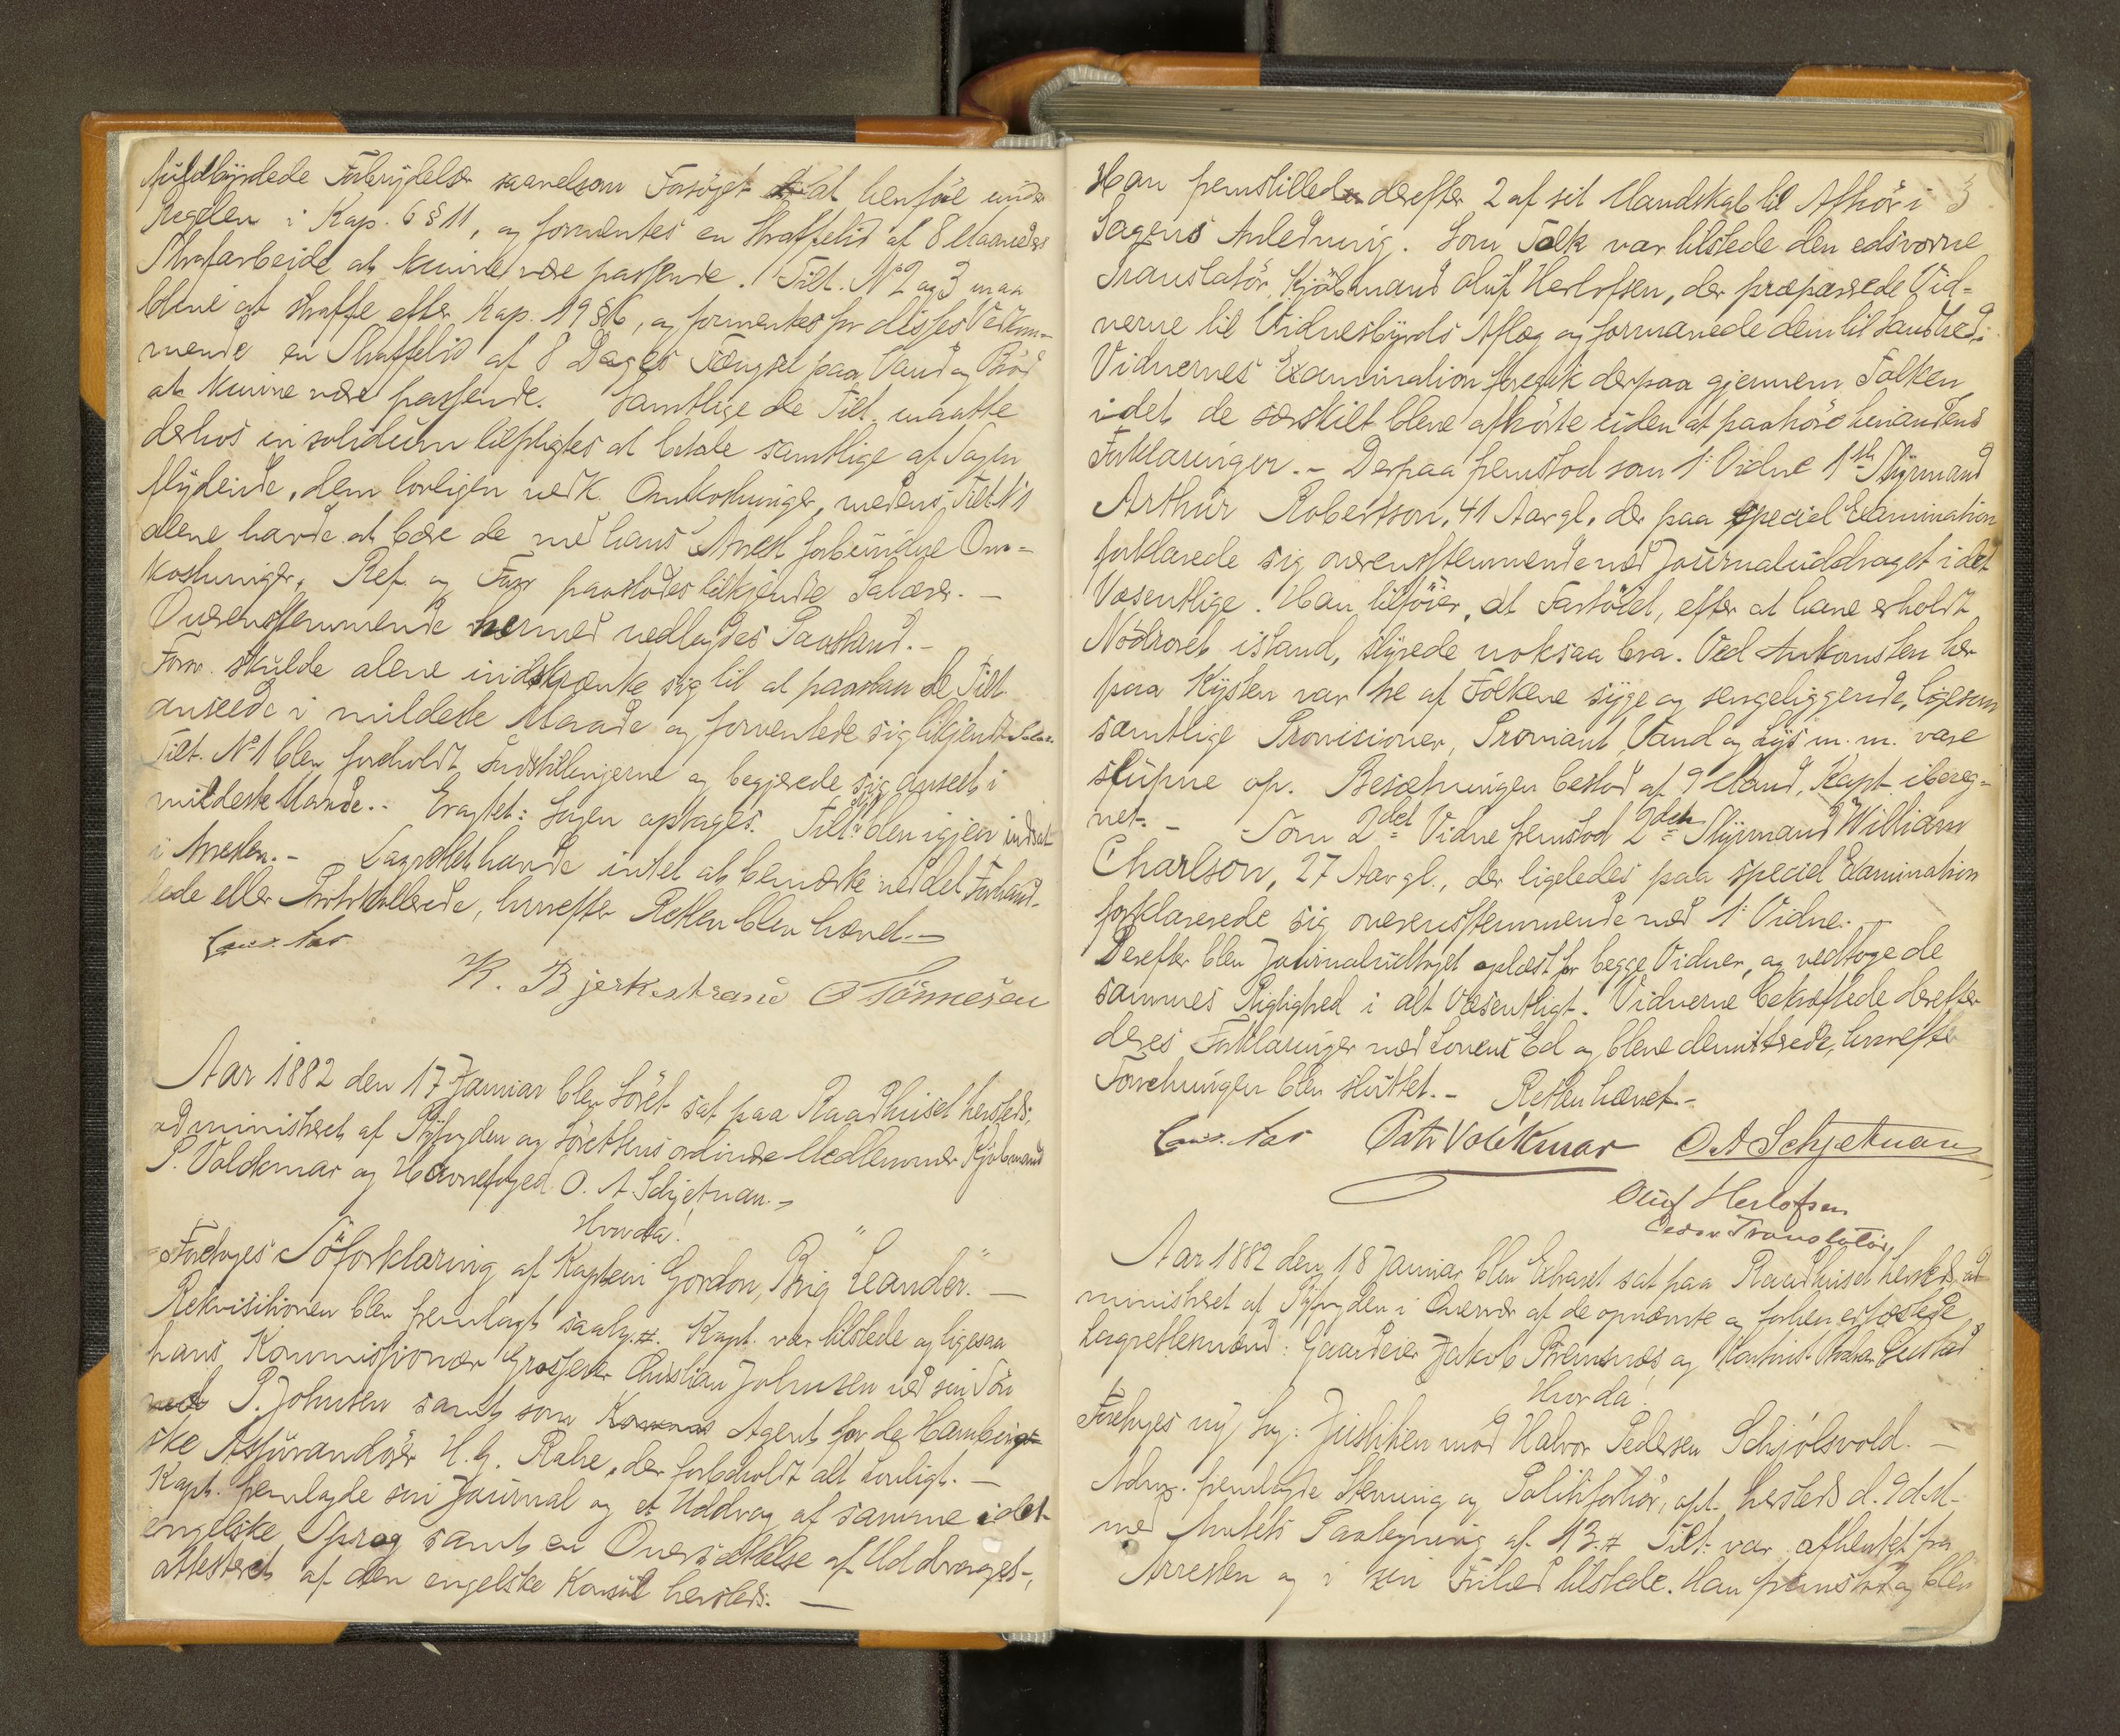 fuldbyrdede Forbrydelse saavelsom Forsøget at henføre under
Regelen i Kap. 6 § 11, og formentes en Straffetid af 8 Maaneders
Strafarbeide at kunne være passende. Tilt. No 2 og 3 maa
blive at straffe efter Kap. 19 §, og formentes for disses Vedkom-
mende en Straffetid af 8 Dages Fængsel paa Vand og Brød
at kunne være passende. Samtlige de Tilt. maatte
derhos in solidum tilpligtes at betale samtlige af Sagen
flydende, dem lovligen vedk. Omkostninger, medens Tilt. No 1
alene havde at bære de med hans Arrest forbundne Om-
kostninger. Ref. og Forsv. paastodes tilkjendte Salærer.–
Overensstemmende hermed nedlagdes Paastand.–
Forsv. skulde alene indskrænke sig til at paastaa de Tilt.
anseede i mildeste Maade og forventede sig tilkjendt Salær.
Tilt. No 1 blev foreholdt Indstillingerne og begjærede sig anseet i
mildeste Maade.– Eragtet: Sagen optages. Tilt. blev igjen indsat
i Arresten.– Lagrettet havde intet at bemærke ved det Forhand-
lede eller Protokollerede, hvorefter Retten blev hævet.–
K. Bjerkestrand O Tönnesen
Aar 1882 den 17 Januar blev Söret sat paa Raadhuset hersteds,
administreret af Byfogden og Sörettens ordinære Medlemmer Kjöbmand
P. Voldkmar og Havnefoged O. A. Schjetnan.–
Hvorda!
Foretoges Söforklaring af Kaptein Gordon, Brig "Leander".–
Rekvisitionen blev fremlagt saalyd. #. Kapt. var tilstede og ligesaa
hans Kommissionær Grosserer Christian Johnsen ved sin Sön
P. Johnsen samt som Agent for de Hamborg-
ske Assurandörer H. G. Rahe, der forbeholdt alt Lovligt.–
Kapt. fremlagde sin Journal og et Uddrag af samme i det
engelske Sprog samt en Oversættelse af Uddraget,
attesteret af den engelske Konsul hersteds.–
Han fremstillede derefter 2 af sit Mandskab til Afhör i 3
Sagens Anledning. Som Tolk var tilstede den edsvorne
Translatör, Kjöbmand Oluf Herlofsen, der præparerede Vid-
nerne til Vidnesbyrds Aflæg og formanede dem til Sandhed.
Vidnernes Examination foregik derpaa gjennem Tolken
idet de særskilt bleve afhörte uden at paahöre hinandens
Forklaringer.– Derpaa fremstod som 1. Vidne 1ste Styrmand
Arthur Robertson, 41 Aar gl., der paa speciel Examination
forklarede sig overensstemmende med Journaluddraget i det
Væsentlige. Han tilföier, at Fartöiet, efter at have erholdt
Nödroret istand, styrede noksaa bra. Ved Ankomsten her
paa Kysten var tre af Folkene syge og sengeliggende, ligesom
samtlige Provisioner, Proviant, Vand og Lys m. m. vare
slupne op. Besætningen bestod af 9 Mand, Kapt. ibereg-
net.– Som 2det Vidne fremstod 2den Styrmand William
Charlson, 27 Aar gl., der ligeledes paa speciel Examination
forklarede sig overensstemmende med 1. Vidne.–
Derefter blev Journaludtoget oplæst for begge Vidner, og vedtoge de
sammes Rigtighed i alt Væsentligt. Vidnerne bekræftede derefter
deres Forklaringer med Lovens Ed og bleve demitterede, hvorefter
Forretningen blev sluttet.– Retten hævet.–
Petr Volckmar O A Schjetnan
Oluf Herlofsen
Edsv Translatör
Aar 1882 den 18 Januar blev Extraret sat paa Raadhuset hersteds, ad-
ministreret af Byfogden i Overvær af de opnævnte og forhen edfæstede
Lagrettemænd: Gaardeier Jakob Bremsnes, og
Hvorda!
Foretoges ny Sag: Justitien mod Halvor Pedersen Schjölsvold.–
Advo. fremlagde Stevning og Politiforhör, opt. hersteds d. 9 d. M.
med Amtets Paategning af 13. # Tilt. var afhentet fra
Arresten og i sin Frihed tilstede. Han fremstod og blev